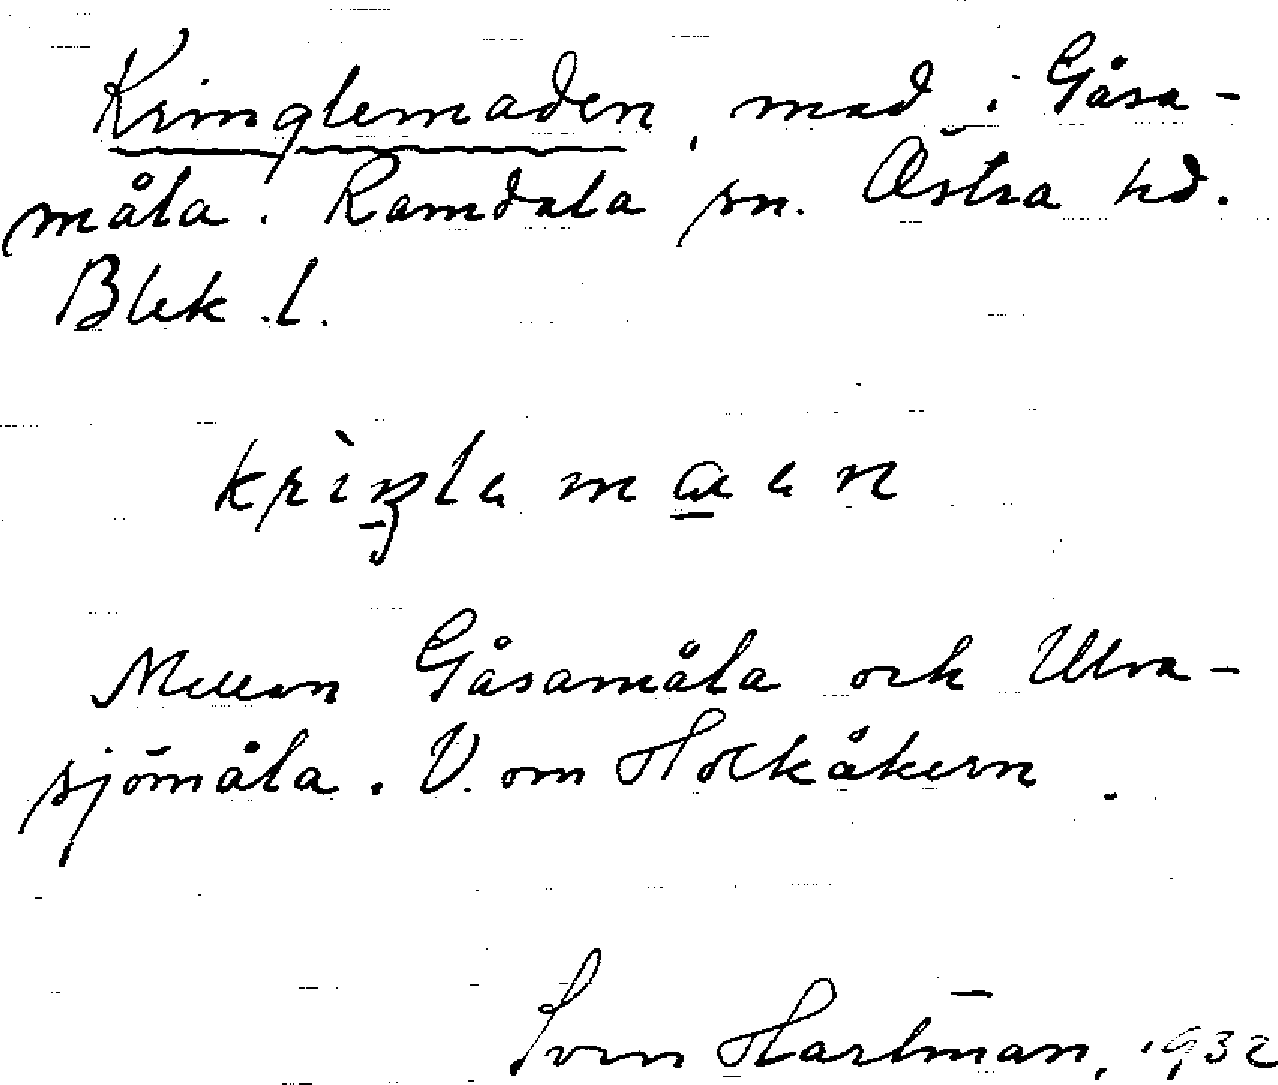 Kringlemaden, mad i Gåsa-
måla. Ramdala sn. Östra hd.
Blek. l.
Mellan Gåsamåla och Ulva-
sjömåla. V. om Holkåkern.
Sven Hartman, 1932